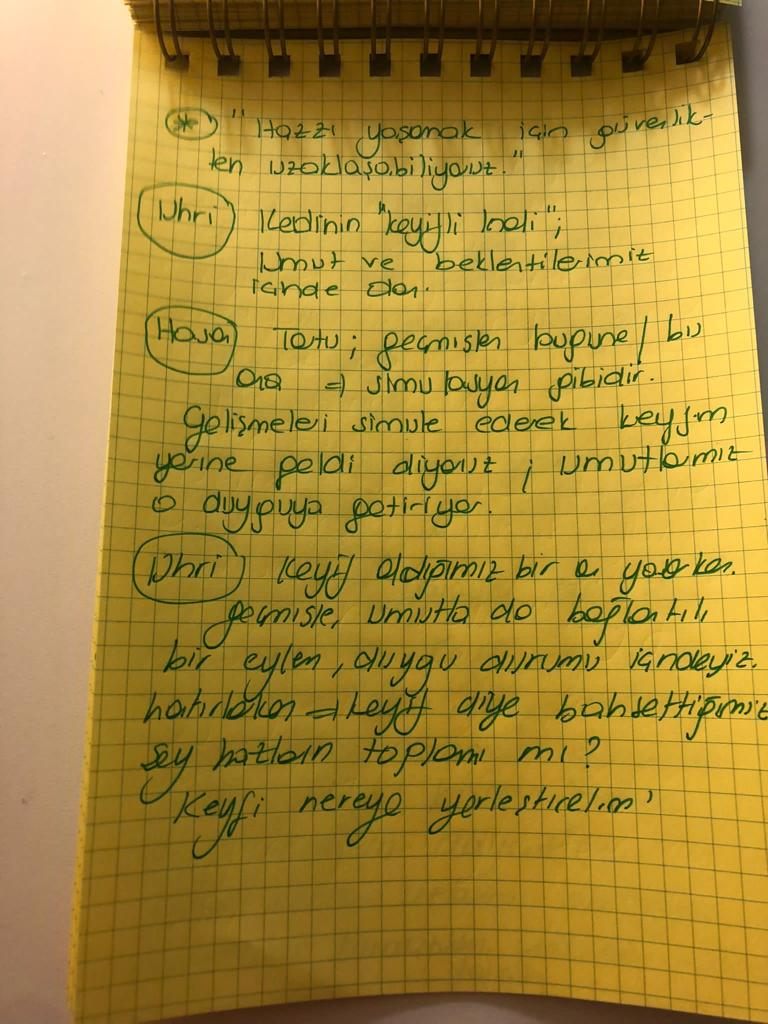 * "Hazzı yaşamak için güvenlik-
ten uzaklaşabiliyoruz."
Uhri Kedinin "keyifli hali";
umut ve beklentilerimiz
içinde olan.
Tortu; geçmişten bugüne / bu
ana ⇒ simulasyon gibidir.
Gelişmeleri simule ederek keyfim
yerine geldi diyoruz; umutlarımız
o duyguya getiriyor.
Uhri Keyif aldığımız bir an yaşarken
geçmişle, umutla da bağlantılı
bir eylem, duygu durumu içindeyiz.
hatırlarken ⇒ keyif diye bahsettiğimiz
şey hazların toplamı mı?
Keyfi nereye yerleştirelim?